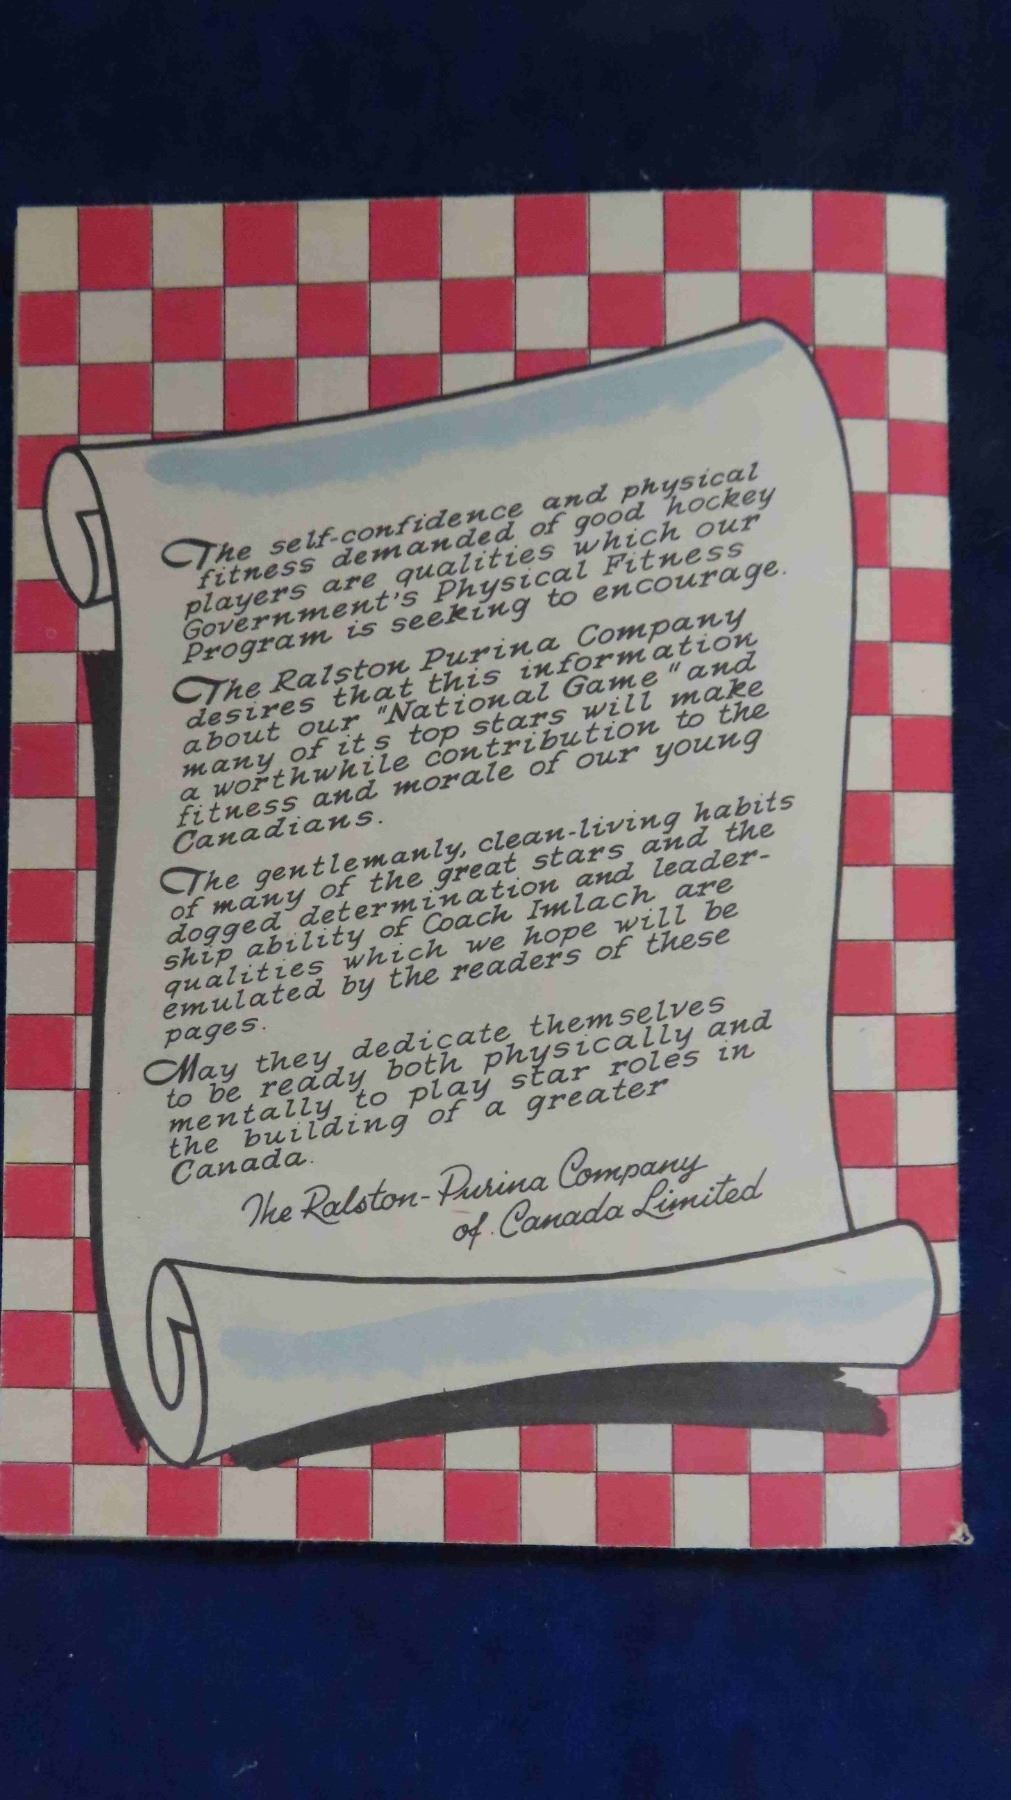 The self-confidence and physical
fitness demanded of good hockey
players are qualities which our
Government's Physical Fitness
Program is seeking to encourage.
The Ralston Purina Company
desires that this information
about our "National Game" and
many of its top stars will make
a worthwhile contribution to the
fitness and morale of our young
Canadians.
The gentlemanly, clean-living habits
of many of the great stars and the
dogged determination and leader-
ship ability of Coach Imlach are
qualities which we hope will be
emulated by the readers of these
pages.
May they dedicate themselves
to be ready both physically and
mentally to play star roles in
the building of a greater
Canada.
The Ralston-Purina Company
of Canada Limited